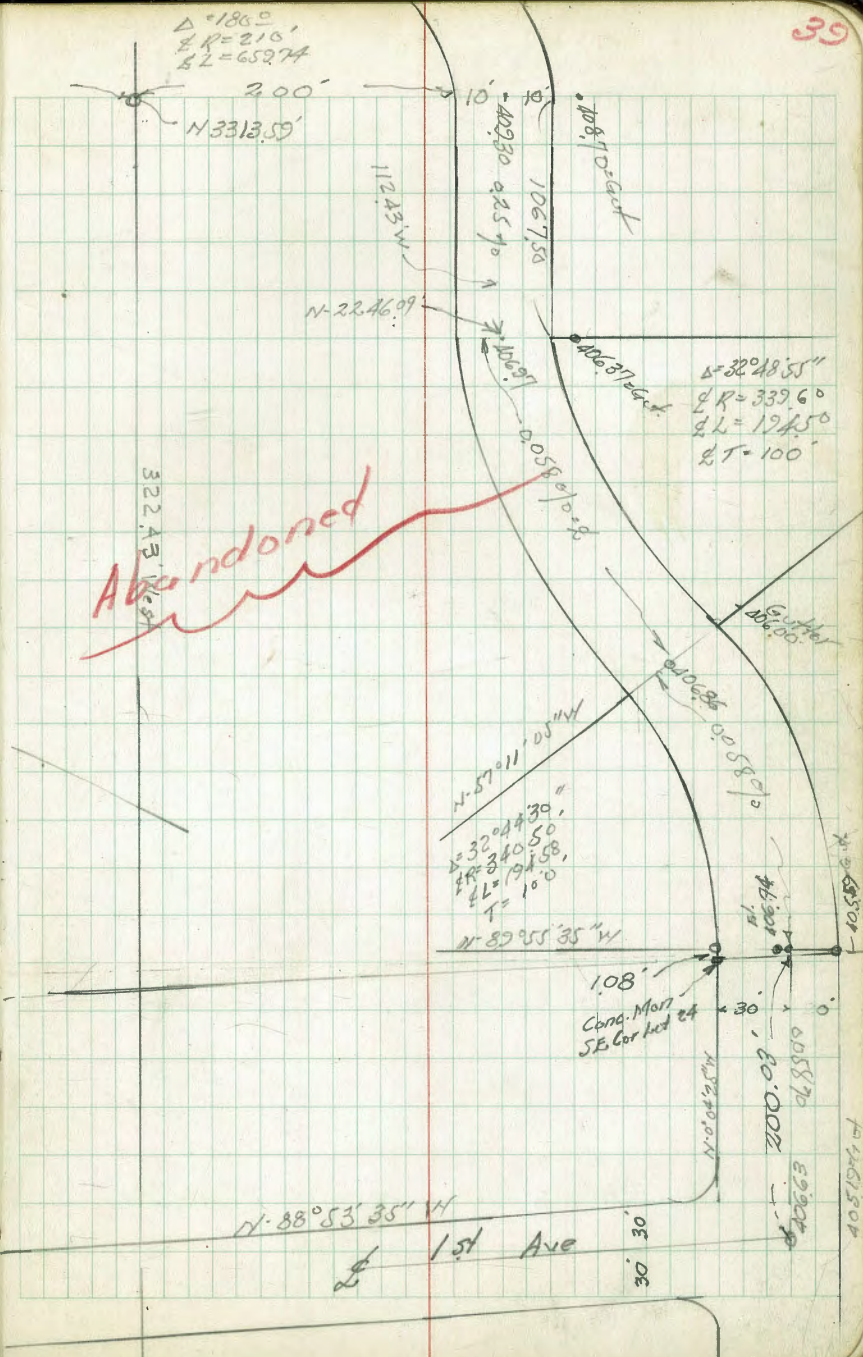 39
Δ=180°
℄ R=210'
℄ L=659.74
200'
10'
10'
N 3313.59'
409.30 0.25%
1067.50
408.70=Gut
112.43' W
N-2246.09'
406.97
406.37=Gut.
Δ=32°48'55"
℄ R=339.60
℄ L=194.50
℄ T=100'
0.058%=℄
322.43' West
Abandoned
Gutter
406.00
406.86
0.058%
N-57°11'05"W
Δ=32°44'30"
℄R=340.50'
℄L=194.58'
T=100
El.
406.94
N-89°55'35"W
1.08'
Conc. Mon
SE Cor Lot 24
30'
0'
200.03'
.058%
N-0°04'25"W
406.63
N-88°53'35"W
℄ 1st Ave
30' 30'